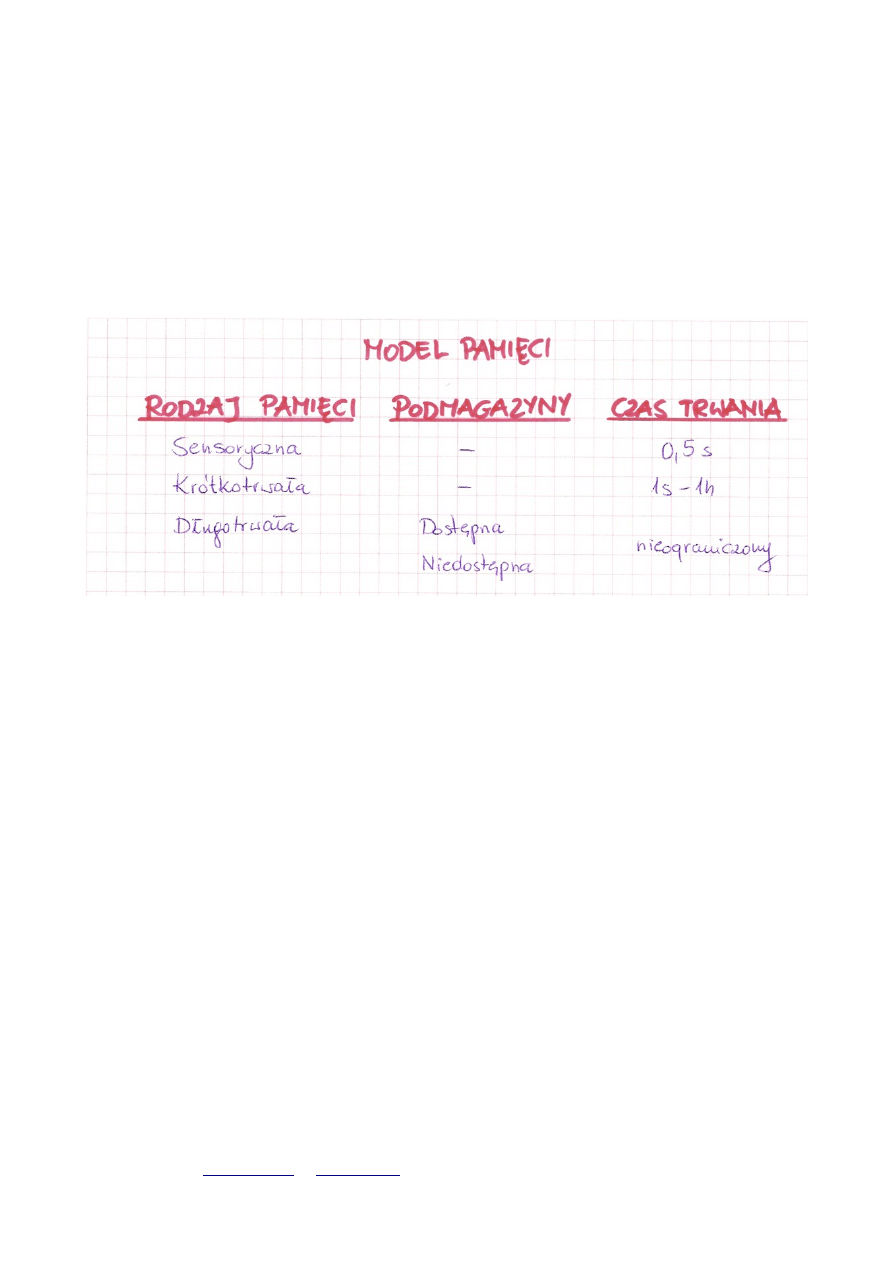 MODEL PAMIĘCI
RODZAJ PAMIĘCI PODMAGAZYNY CZAS TRWANIA
Sensoryczna – 0,5 s
Krótkotrwała – 1s – 1h
Długotrwała Dostępna
nieograniczony
Niedostępna